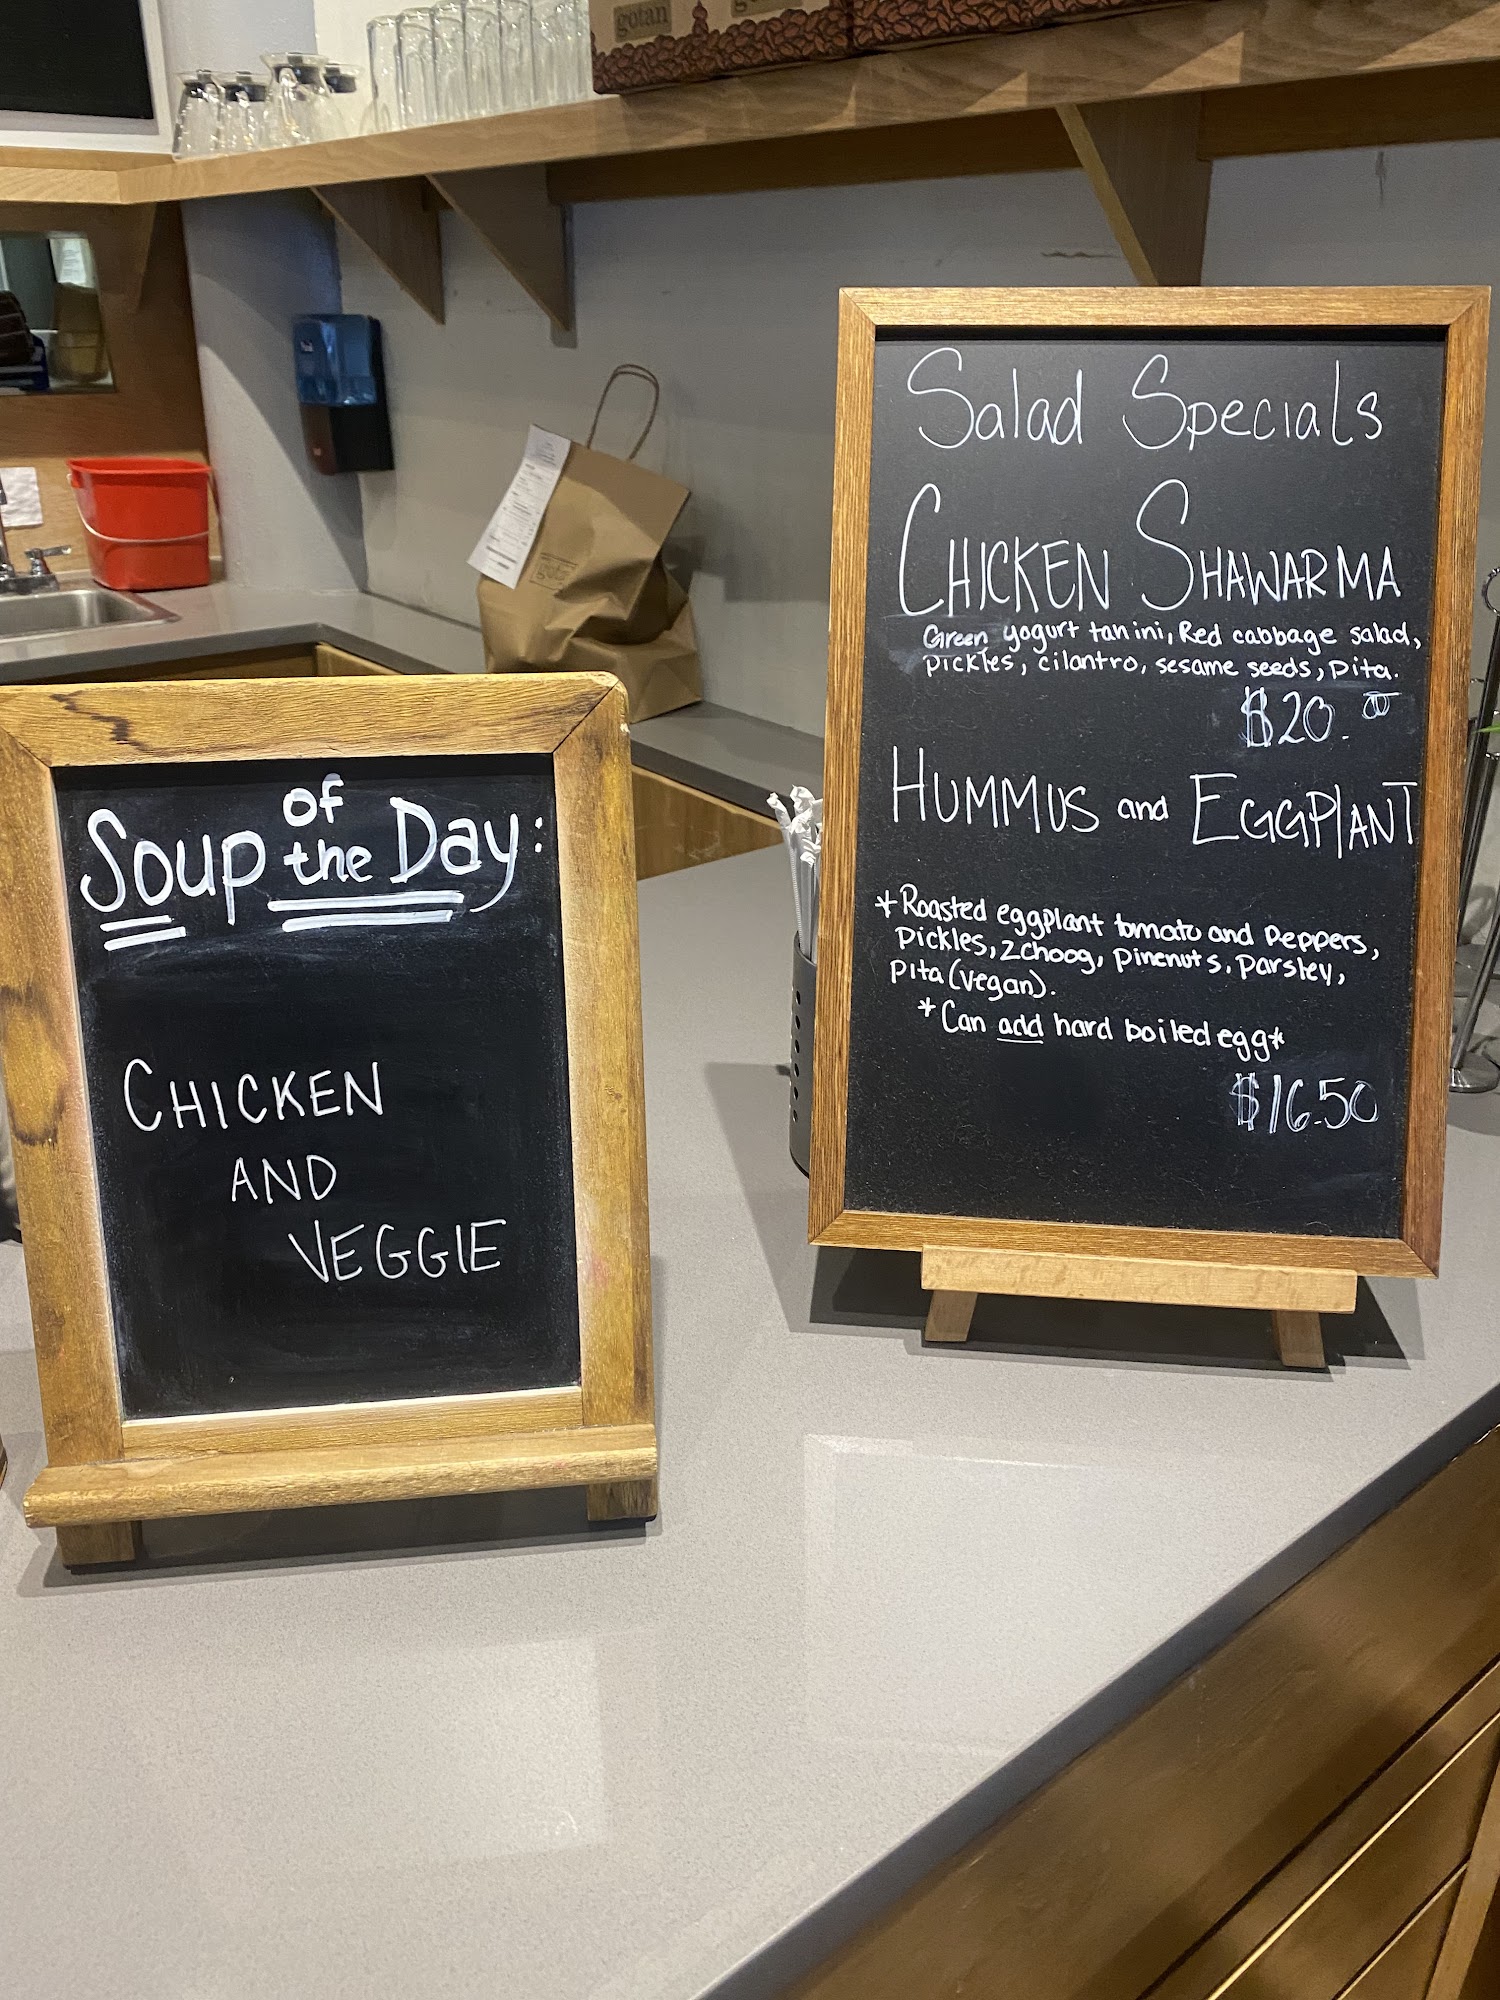 gotan
Soup of the Day:
CHICKEN
AND
VEGGIE
Salad Specials
CHICKEN SHAWARMA
Green, yogurt tahini, Red cabbage salad,
pickles, cilantro, sesame seeds, pita.
$20.00
HUMMUS and EGGPLANT
*Roasted eggplant tomato and peppers,
pickles, zchoog, pinenuts, parsley,
pita (vegan).
*Can add hard boiled egg*
$16.50